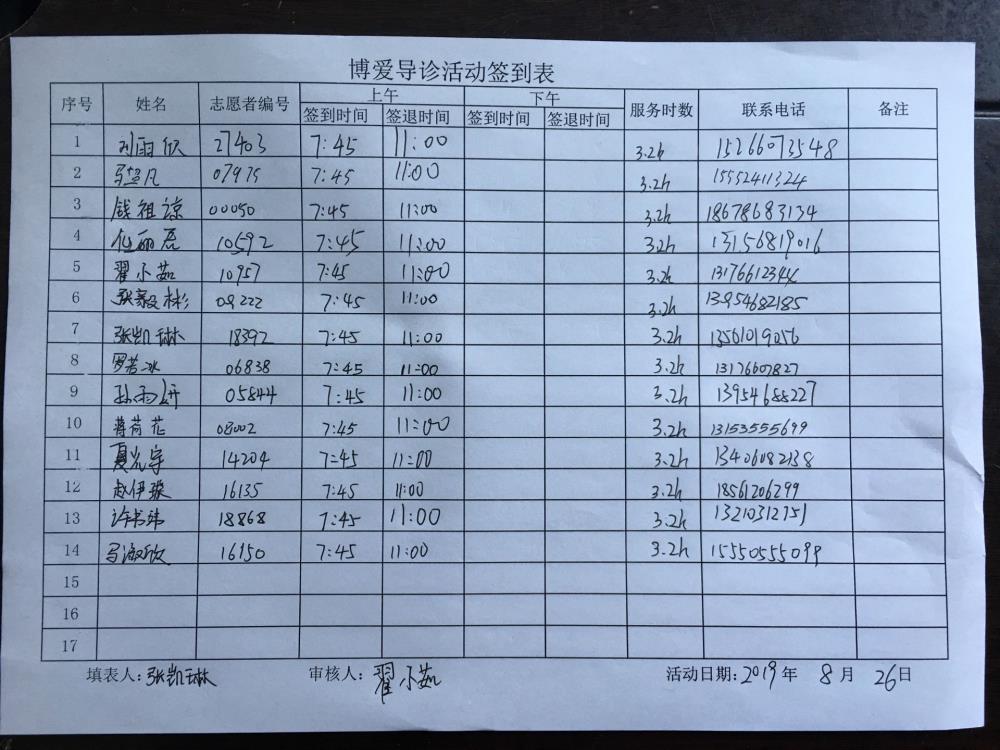 博爱导诊活动签到表
序号 姓名 志愿者编号 上午 下午 服务时数 联系电话 备注
签到时间 签退时间 签到时间 签退时间
1 刘雨欣 27403 7:45 11:00 3.2h 15266073548
2 马楚凡 07975 7:45 11:00 3.2h 15552411324
3 钱祖谅 00050 7:45 11:00 3.2h 18678683134
4 任丽磊 10592 7:45 11:00 3.2h 13156819016
5 翟小茹 10957 7:45 11:00 3.2h
6 张毅彬 09222 7:45 11:00 3.2h 13954682185
7 张凯琳 18392 7:45 11:00 3.2h 13561019056
8 罗若冰 06838 7:45 11:00 3.2h 13176607827
9 孙雨妍 05844 7:45 11:00 3.2h 13954688227
10 蒋荷花 08002 7:45 11:00 3.2h 13153555699
11 夏光宇 14204 7:45 11:00 3.2h 13406082138
12 赵伊璇 16135 7:45 11:00 3.2h 18561206299
13 许书玮 18868 7:45 11:00 3.2h 13210312751
14 马淑欣 16150 7:45 11:00 3.2h 15550555099
15
16
17
填表人:张凯琳 审核人:翟小茹 活动日期:2019年 8月 26日